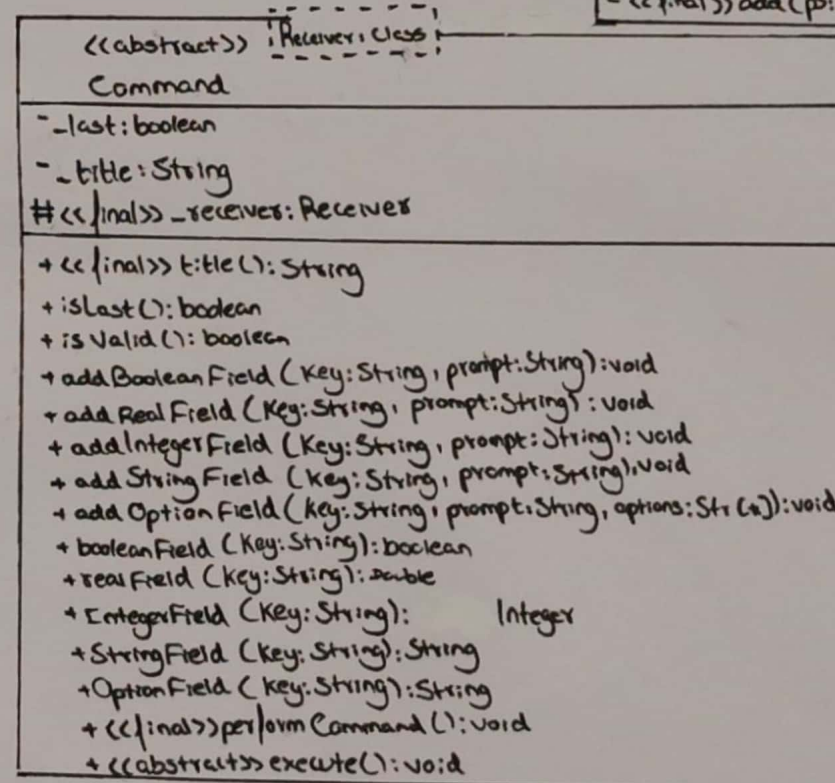 - <<final>> add (po
<<abstract>> Receiver: Class
Command
- _last: boolean
- _title: String
# <<final>> _receiver: Receiver
+ <<final>> title(): String
+ isLast(): boolean
+ isValid(): boolean
+ addBooleanField (Key: String, prompt: String): void
+ addRealField (Key: String, prompt: String): void
+ addIntegerField (Key: String, prompt: String): void
+ addStringField (Key: String, prompt: String): void
+ addOptionField (Key: String, prompt: String, options: Str [*]): void
+ booleanField (Key: String): boolean
+ realField (Key: String): Double
+ IntegerField (Key: String): Integer
+ StringField (Key: String): String
+ OptionField (Key: String): String
+ <<final>> performCommand (): void
+ <<abstract>> execute(): void